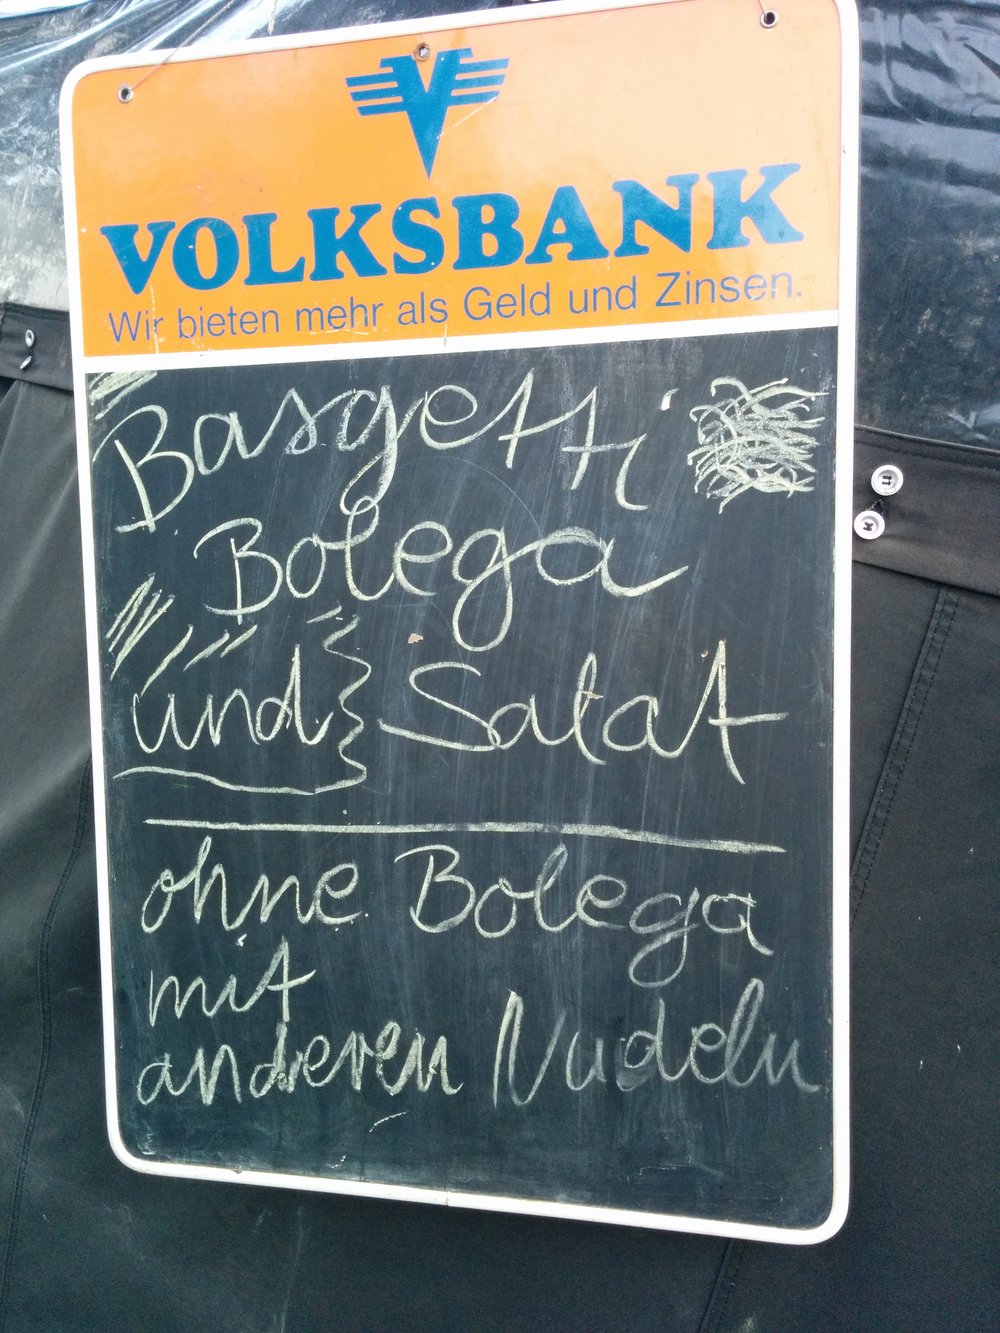 VOLKSBANK
Wir bieten mehr als Geld und Zinsen.
Basgetti
Bolega
und Salat
ohne Bolega
mit
anderen Nudeln